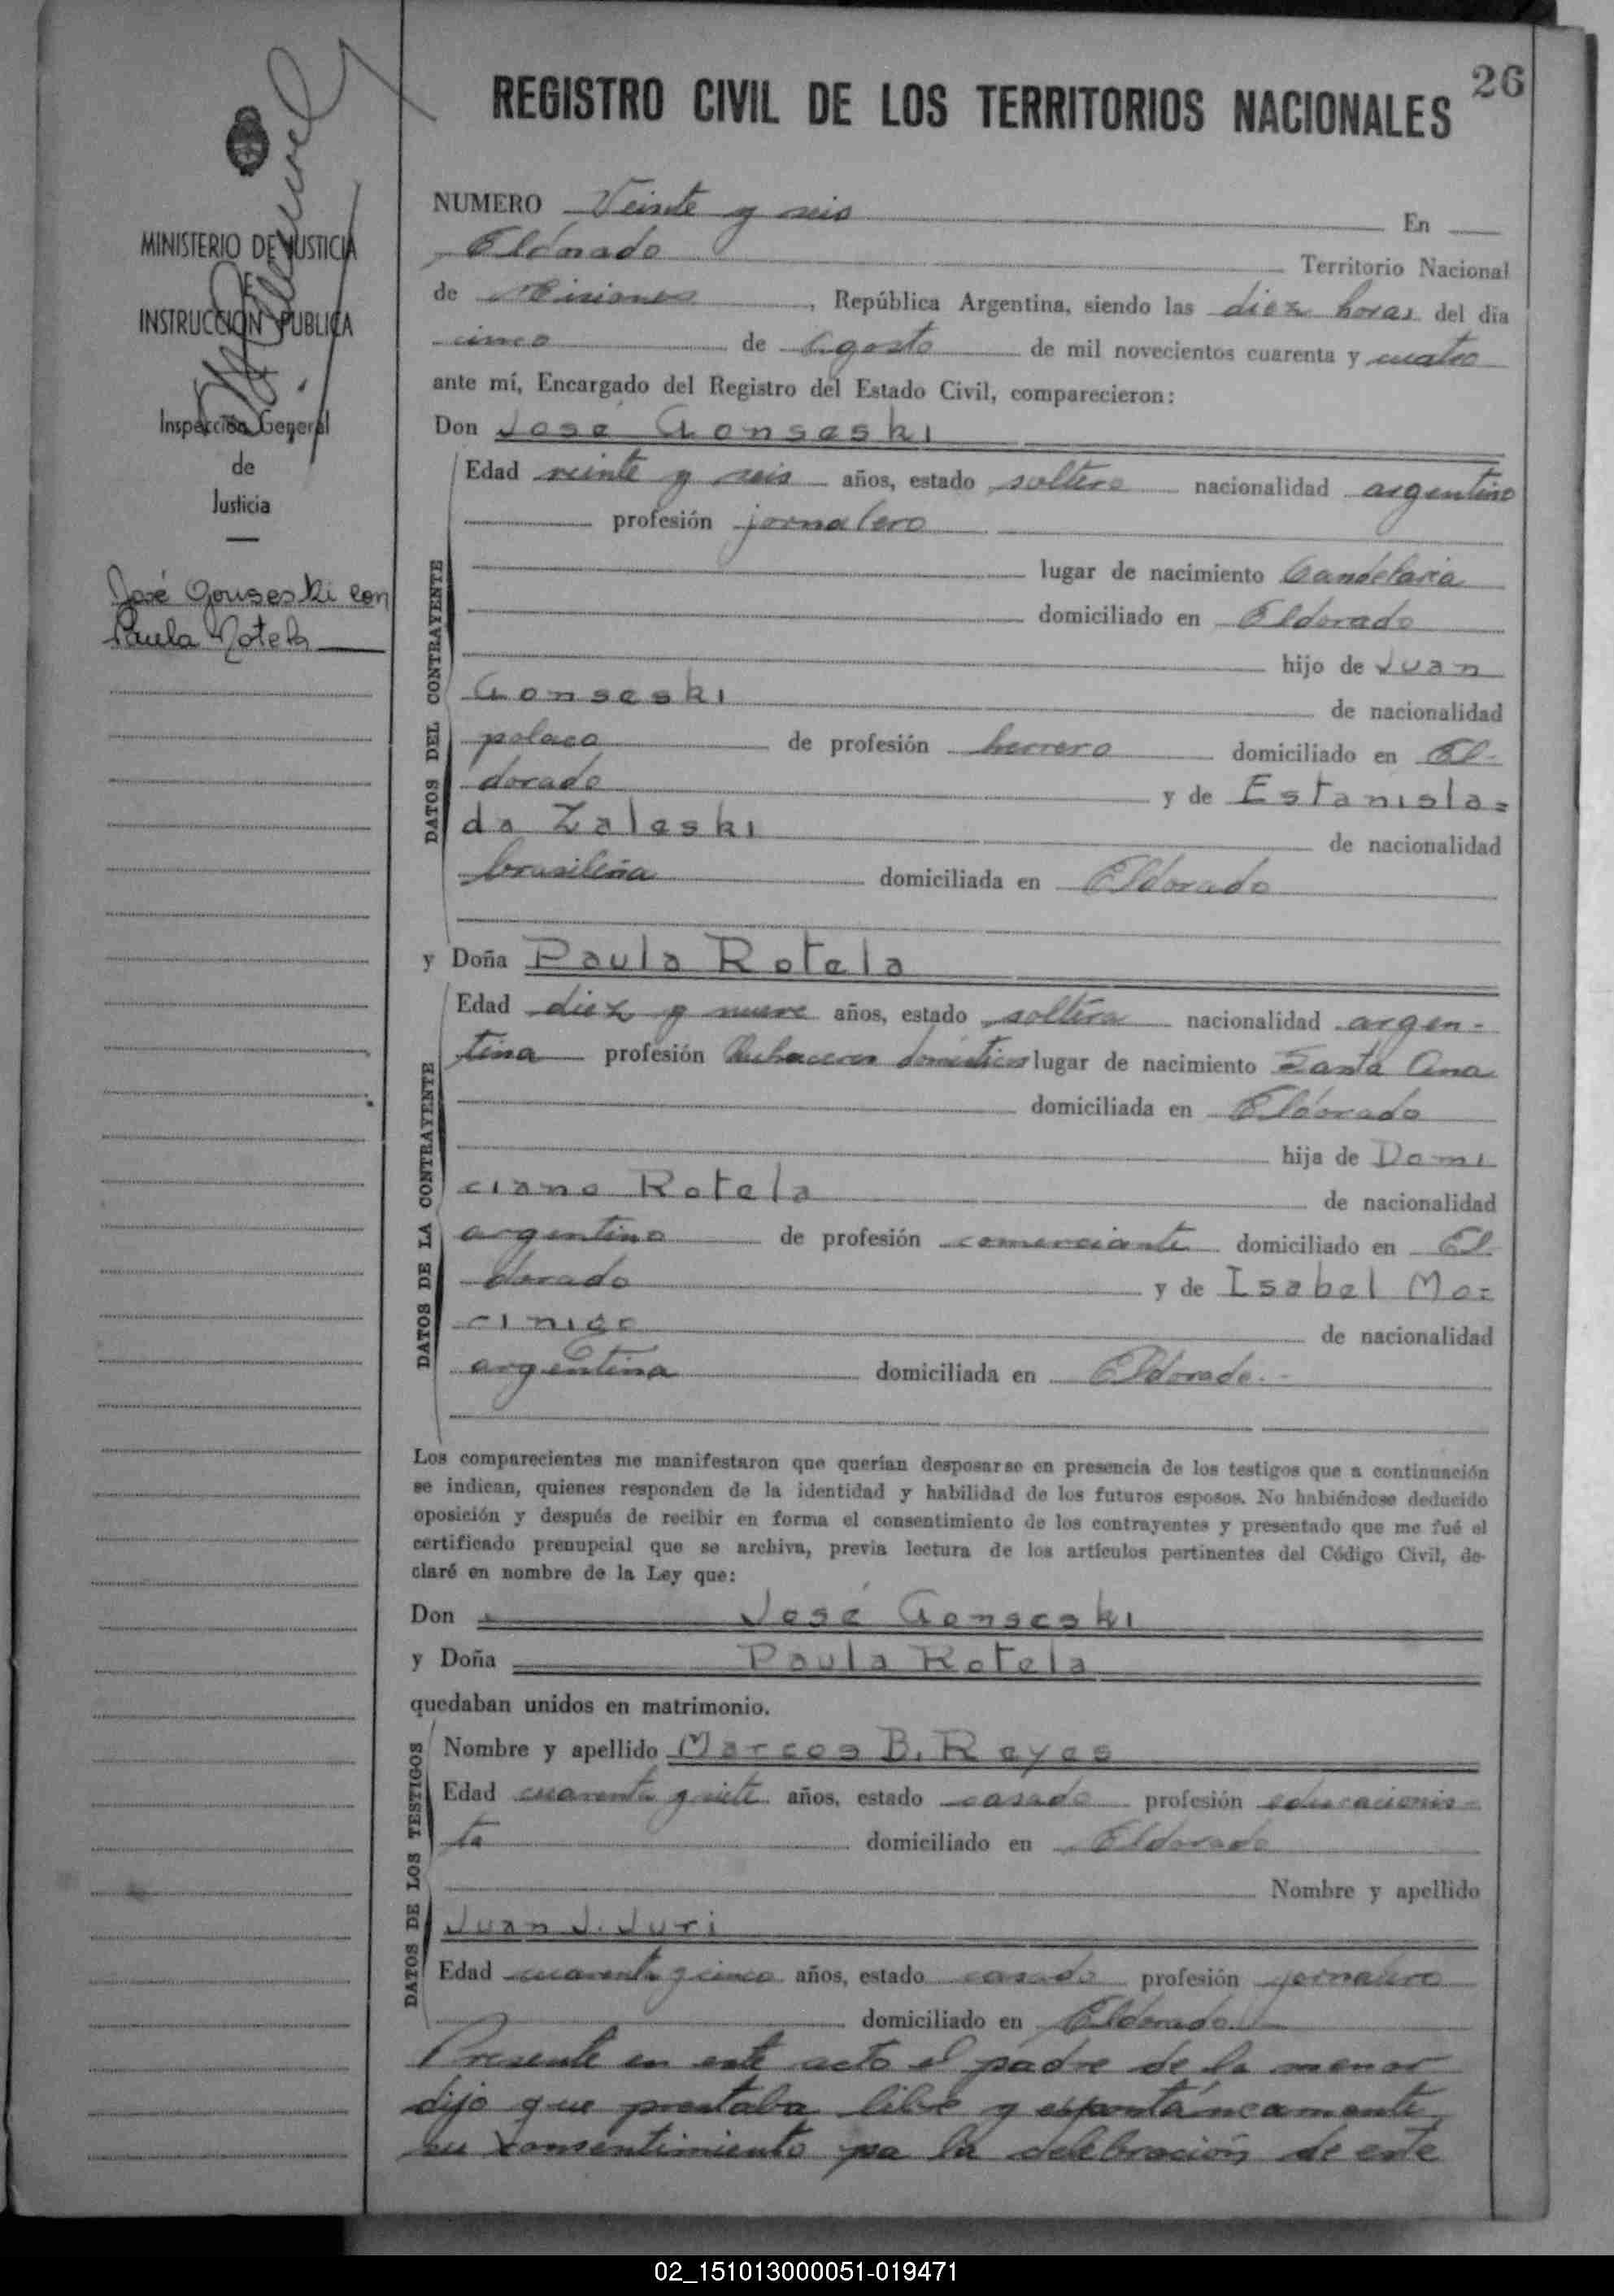 26
REGISTRO CIVIL DE LOS TERRITORIOS NACIONALES
MINISTERIO DE JUSTICIA
E
INSTRUCCION PUBLICA
Inspección General
de
Justicia
José Gonseski con
Paula Rotela
NUMERO Veinte y seis En
Eldorado Territorio Nacional
de Misiones, República Argentina, siendo las diez horas del día
cinco de Agosto de mil novecientos cuarenta y cuatro
ante mí, Encargado del Registro del Estado Civil, comparecieron:
Don José Gonseski
DATOS DEL CONTRAYENTE
Edad veinte y seis años, estado soltero nacionalidad argentino
profesión jornalero
lugar de nacimiento Candelaria
domiciliado en Eldorado
hijo de Juan
Gonseski de nacionalidad
polaco de profesión herrero domiciliado en El-
dorado y de Estanisla=
da Zaleski de nacionalidad
brasileña domiciliada en Eldorado
y Doña Paula Rotela
DATOS DE LA CONTRAYENTE
Edad diez y nueve años, estado soltera nacionalidad argen-
tina profesión Quehaceres domésticos lugar de nacimiento Santa Ana
domiciliada en Eldorado
hija de Domi
ciano Rotela de nacionalidad
argentino de profesión comerciante domiciliado en El
dorado y de Isabel Mo=
rinigo de nacionalidad
argentina domiciliada en Eldorado.-
Los comparecientes me manifestaron que querían desposarse en presencia de los testigos que a continuación
se indican, quienes responden de la identidad y habilidad de los futuros esposos. No habiéndose deducido
oposición y después de recibir en forma el consentimiento de los contrayentes y presentado que me fué el
certificado prenupcial que se archiva, previa lectura de los artículos pertinentes del Código Civil, de-
claré en nombre de la Ley que:
Don José Gonseski
y Doña Paula Rotela
quedaban unidos en matrimonio.
DATOS DE LOS TESTIGOS
Nombre y apellido Marcos B. Reyes
Edad cuarenta y siete años, estado casado profesión educacionis-
ta domiciliado en Eldorado
Nombre y apellido
Juan J. Juri
Edad cuarenta y cinco años, estado casado profesión jornalero
domiciliado en Eldorado.
Presente en este acto el padre de la menor
dijo que prestaba libre y espontáneamente
su consentimiento pa la celebración de este
02_151013000051-019471